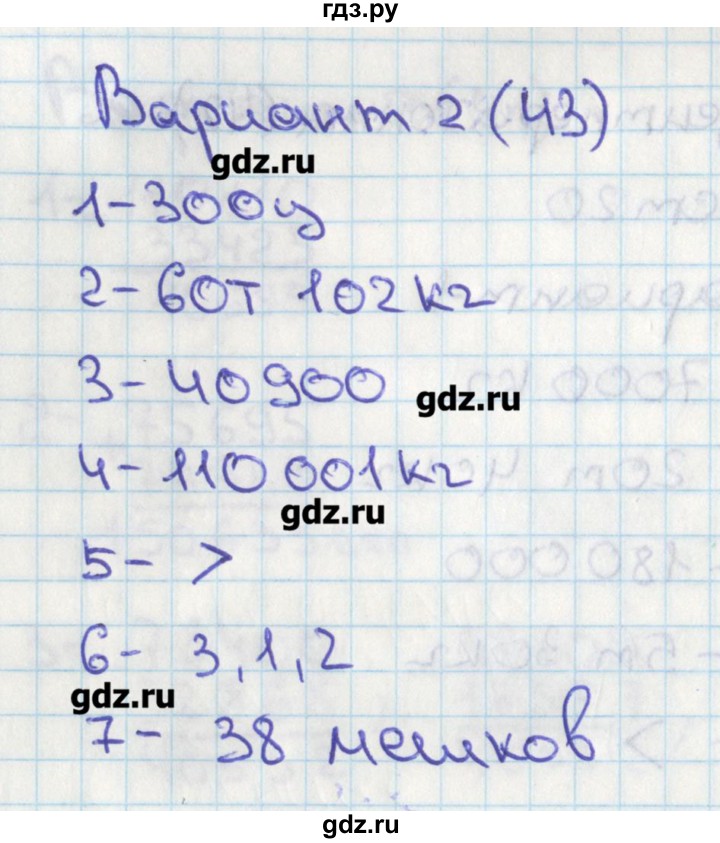 гдз.ру
Вариант 2 (43)
gdz.ru
1-300ц
2-60т 102кг
3-40900
gdz.ru
4-110 001кг
gdz.ru
5- >
6- 3,1,2
gdz.ru
7- 38 мешков
gdz.ru